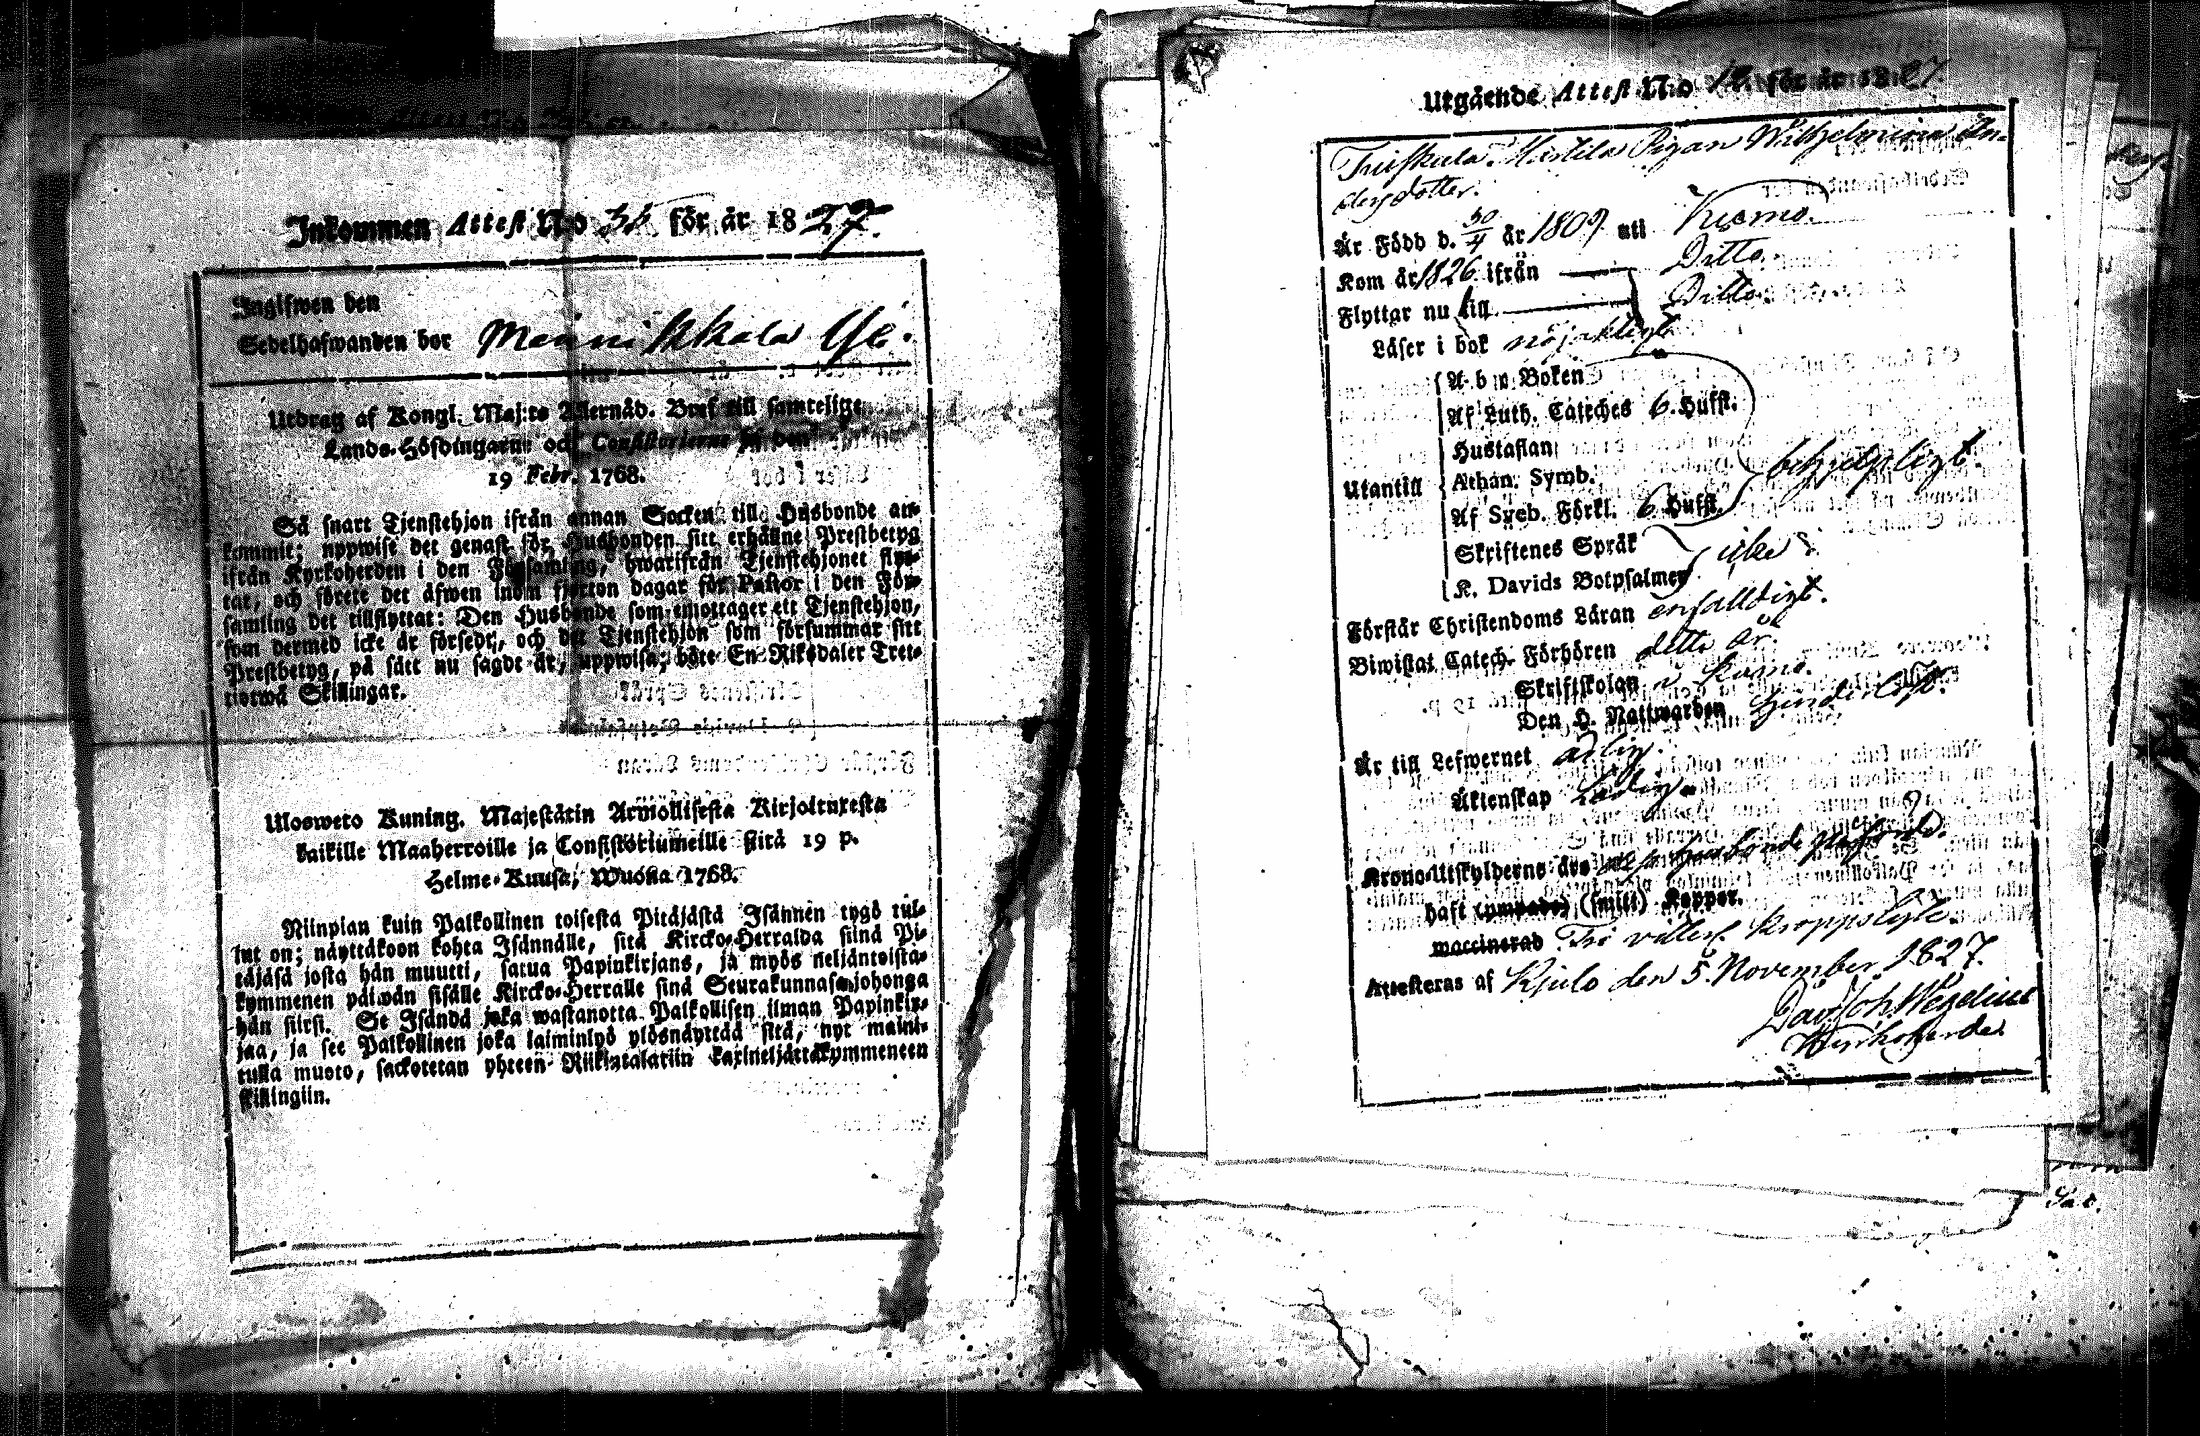 Inkommen Attest N:o 35 för år 1827.
Ingifwen den
Sedelhafwanden bor Mannikkala By.
Utdrag af Kongl. Maj:ts Allernåd. Bref till samtelige
Lands-Höfdingarne och Consistorierne på den
19 Febr. 1768.
Så snart Tjenstehjon ifrån annan Socken till Husbonde an-
kommit; uppwise det genast för Husbonden sitt erhållne Prestbetyg
ifrån Kyrkoherden i den Församling, hwarifrån Tjenstehjonet flyt-
tat, och förete det äfwen inom fjorton dagar för Pastor i den För-
samling det tillflyttat: Den Husbonde som emottager ett Tjenstehjon,
som dermed icke är försedt, och det Tjenstehjon som försummar sitt
Prestbetyg, på sätt nu sagdt är, uppwisa; böte En Riksdaler Tret-
tiotwå Skillingar.
Ulosweto Kuning. Majestätin Armollisesta Kirjoituxesta
kaikille Maaherroille ja Consistoriumeille siitä 19 p.
Helme-Kuusa, Wuona 1768.
Niinpian kuin Palkollinen toisesta Pitäjästä Isännen tygö tul-
lut on; näyttäkoon kohta Isännälle, sitä Kircko-Herralda siinä Pi-
täjäsä josta hän muutti, saatua Papinkirjans, ja myös neljäntoista-
kymmenen päiwän sisälle Kircko-Herralle sinä Seurakunnasa johonga
hän siirsi. Se Isändä joka wastanotta Palkollisen ilman Papinkir-
jaa, ja see Palkollinen joka laiminlyö ylösnäyttää sitä, nyt maini-
tulla muoto, sackotetan yhteen Riikintalariin kaxineljättäkymmeneen
skillingiin.
Utgående Attest N:o 12. för år 1827.
Pigan Wilhelmina An-
dersdotter.
Är Född d. 30/4 år 1809 uti Kiomo.
Kom år 1826 ifrån Ditto.
Flyttar nu till Ditto.
Läser i bok nöjaktigt
A b c Boken
Af Luth. Cateches 6. Hufst.
Hustaflan
Utantill Athan. Symb. behjelpligt.
Af Sveb. Förkl. 6 Hufst.
Skriftenes Språk
K. Davids Botpsalmer icke
Förstår Christendoms Läran enfalldigt.
Biwistat Catech. Förhören detta år.
Skriftskolan i Kiomo.
Den H. Nattwarden hinderlöst.
Är till Lefwernet ärlig.
Äktenskap Ledig.
Krono-Utskylderne des
haft (ympade) (smitt) Koppor.
waccinerad Fri kroppslyte.
Attesteras af Kjulo den 5. November 1827.
Dav. Joh. Wegelius
Kyrkoherde.